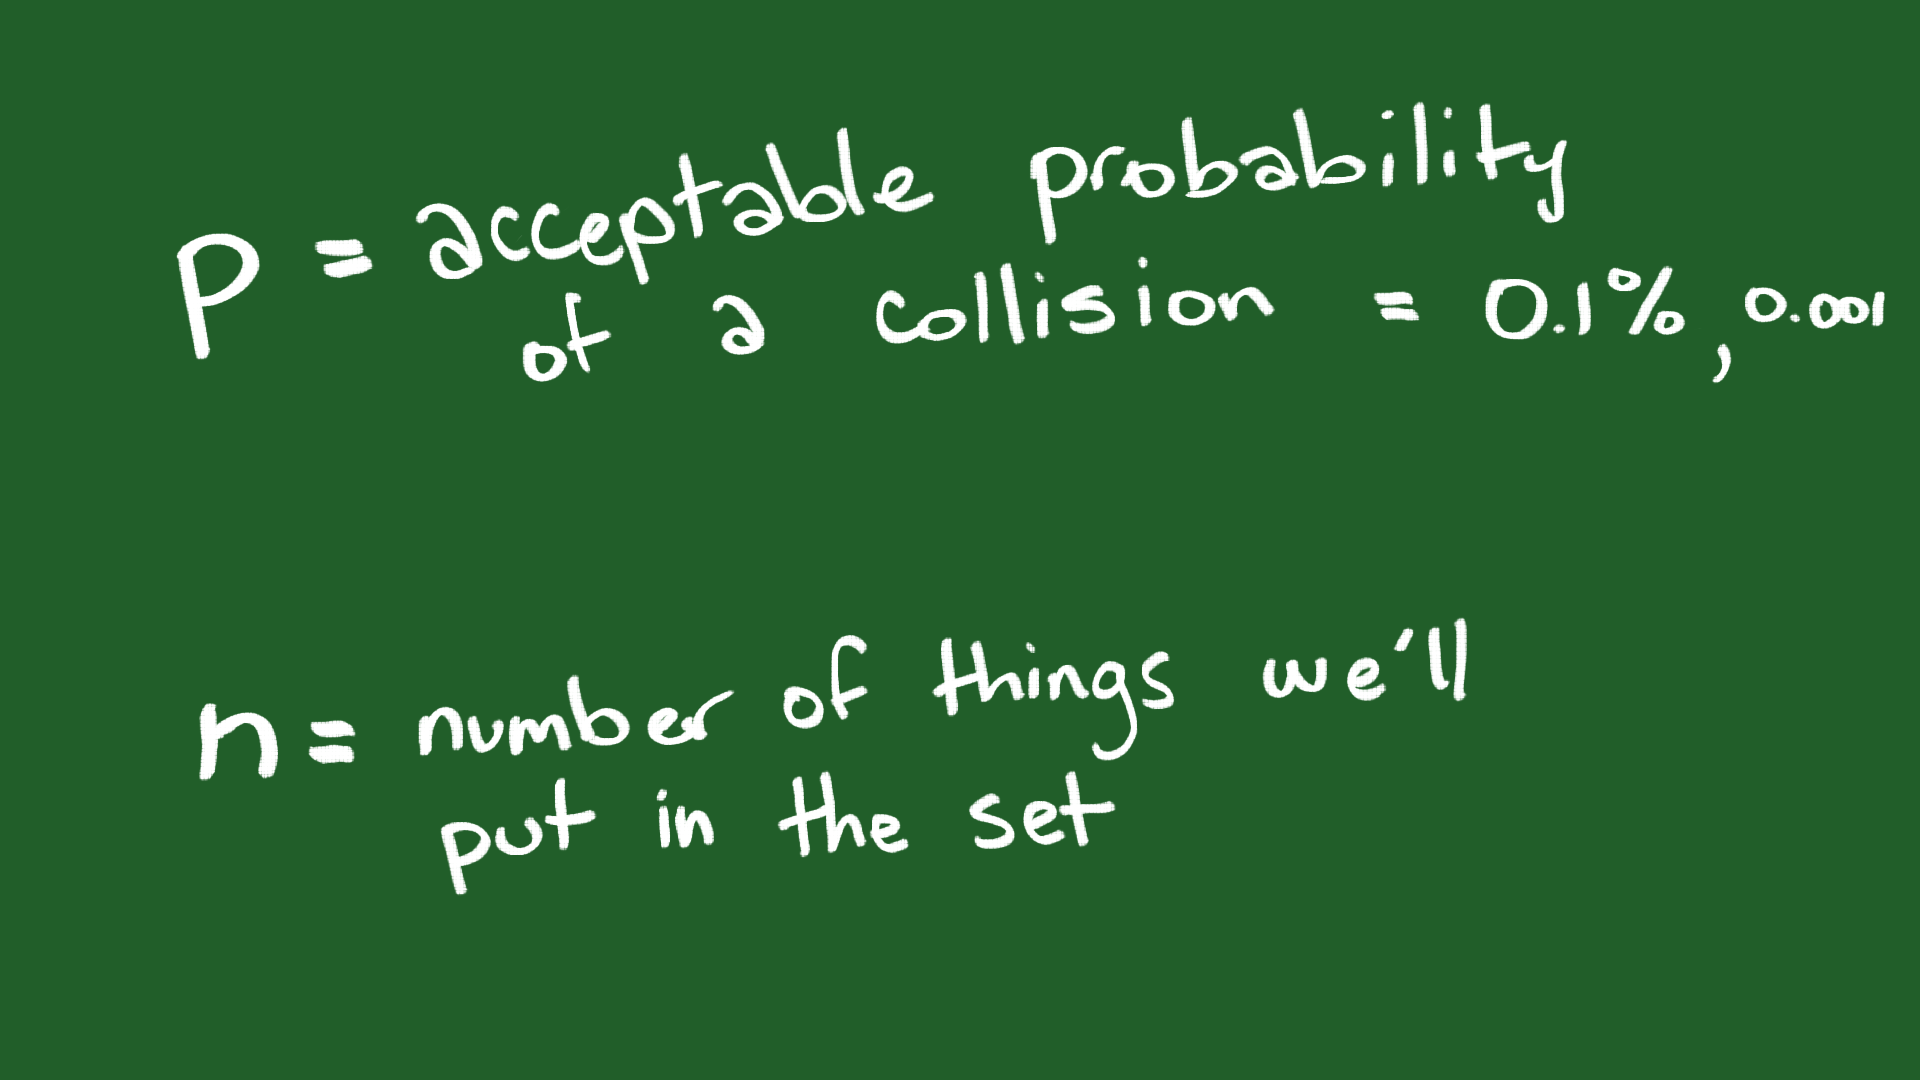 P = acceptable probability
of a collision = 0.1%, 0.001
n = number of things we'll
put in the set